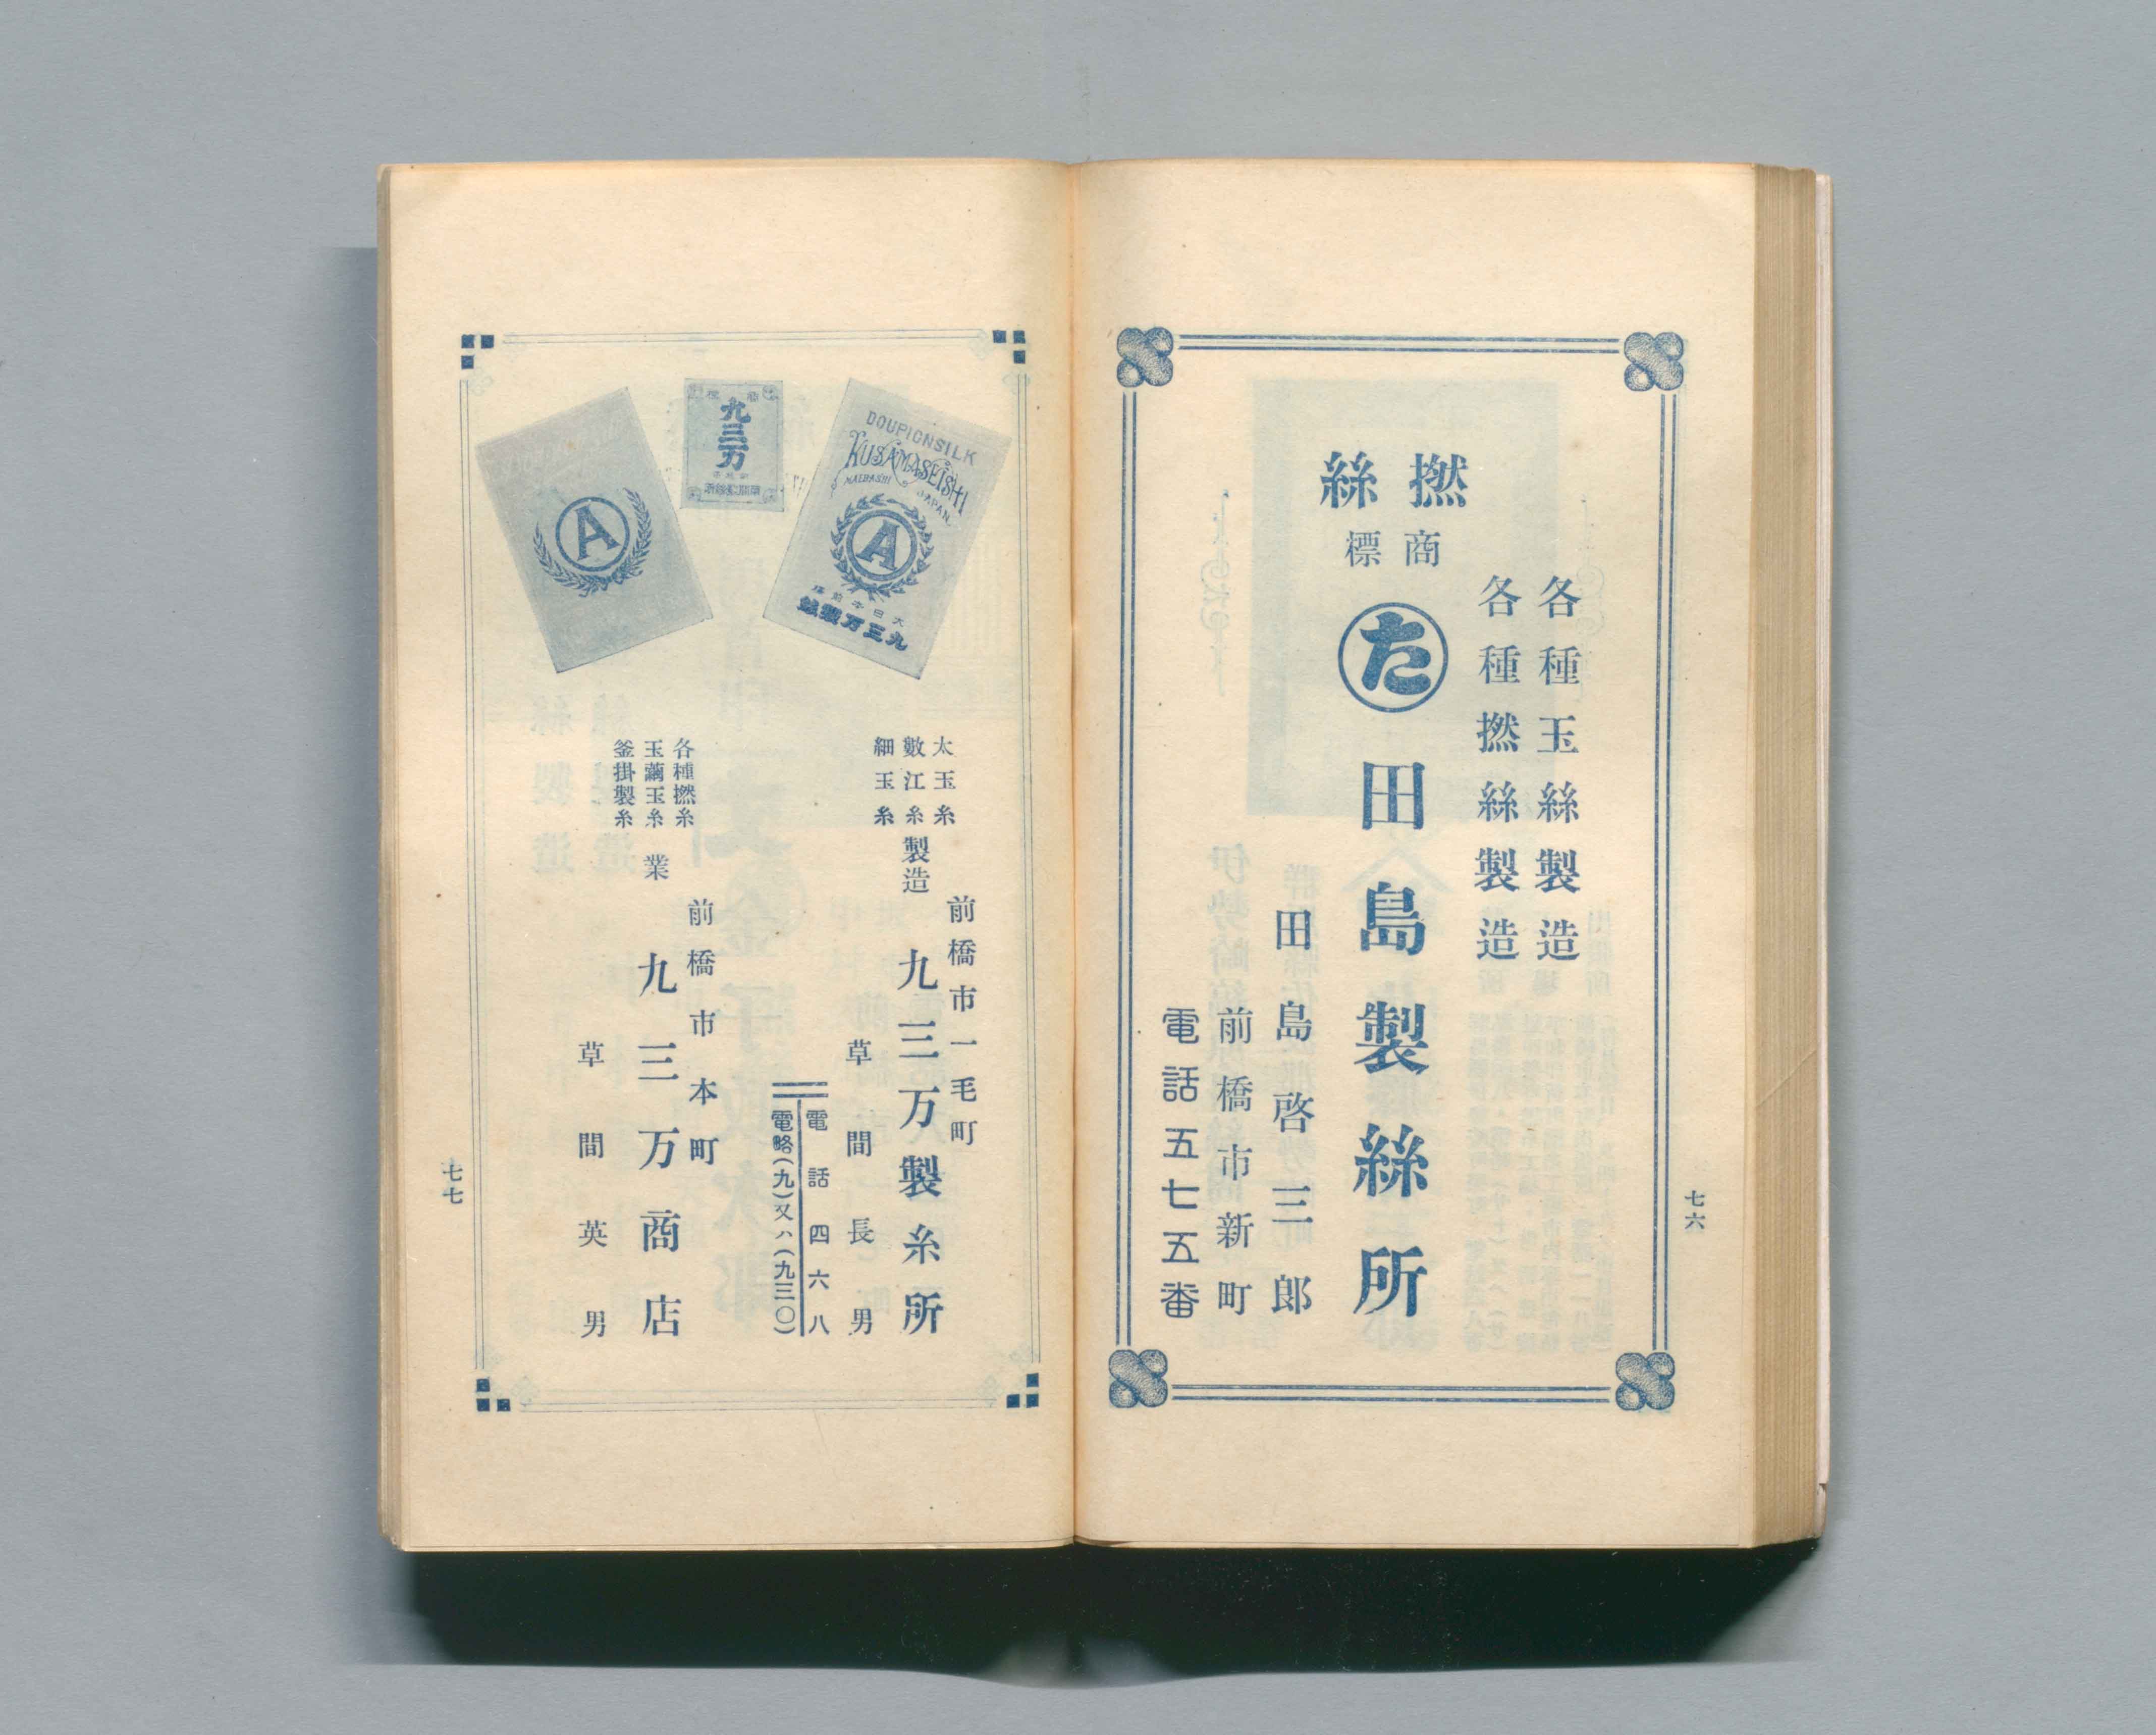 各種玉絲製造
各種撚絲製造
撚絲
商標
た
田島製絲所
田島啓三郎
前橋市新町
電話五七五番
七六
DOUPIONSILK
KUSAMASEISHI
MAEBASHI JAPAN
A
大日本前橋
九三万製絲
商標
九三万
A
太玉糸
數江糸
細玉糸
製造
前橋市一毛町
九三万製糸所
草間長男
電話四六八
電略(九)又ハ(九三〇)
各種撚糸
玉繭玉糸
釜掛製糸
業
前橋市本町
九三万商店
草間英男
七七